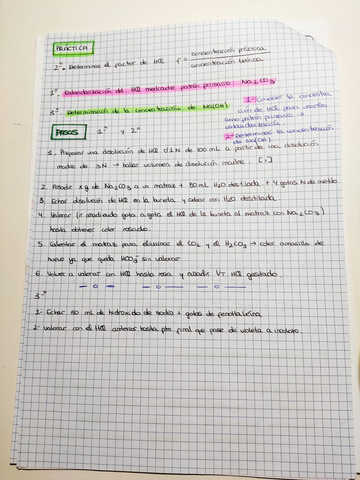 PRÁCTICA
2º. Determinar el factor de HCl f = concentración práctica / concentración teórica
1º. Estandarización del HCl mediante patrón primario Na2CO3
3º Determinación de la concentración de Na(OH)
1- Conocer la concentra
ción de HCl para
como patrón primario →
estandarización
2- Determinamos la concentración
de Na(OH)
PASOS 1º y 2º
1. Preparar una disolución de HCl 0'1N de 100 mL a partir de una disolución
madre de N → hallar volumen de disolución madre.
2. Añadir x g de Na2CO3 a un matraz + 50 mL H2O destilada + 4 gotas N de metilo
3. Echar disolución de HCl en la bureta y enrasar con H2O destilada.
4. Valorar (ir añadiendo gota a gota el HCl de la bureta al matraz con Na2CO3)
hasta obtener color rosado.
5. Calentar el matraz para eliminar el CO2 y el H2CO3 → color amarillo de
nuevo ya que queda HCO3- sin valorar
6. Volver a valorar con HCl hasta rosa y anotar VT HCl gastado.
3º
1- Echar 50 mL de hidróxido de sodio + gotas de fenolftaleína
2- Valorar con el HCl anterior hasta pto final que pase de violeta a incoloro.